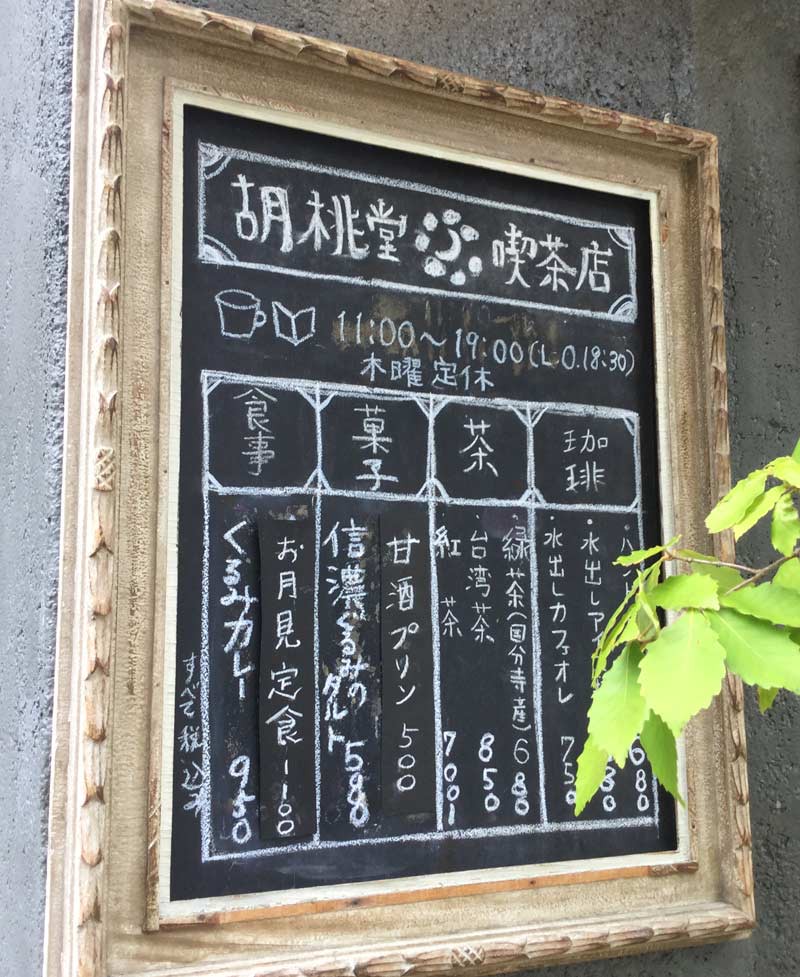 胡桃堂 喫茶店
11:00〜19:00(L.O.18:30)
木曜定休
珈琲
水出しカフェオレ 750
茶
緑茶(国分寺産) 680
台湾茶 850
紅茶 700
菓子
甘酒プリン 500
信濃くるみのタルト 580
食事
お月見定食 1100
くるみカレー 950
すべて税込み